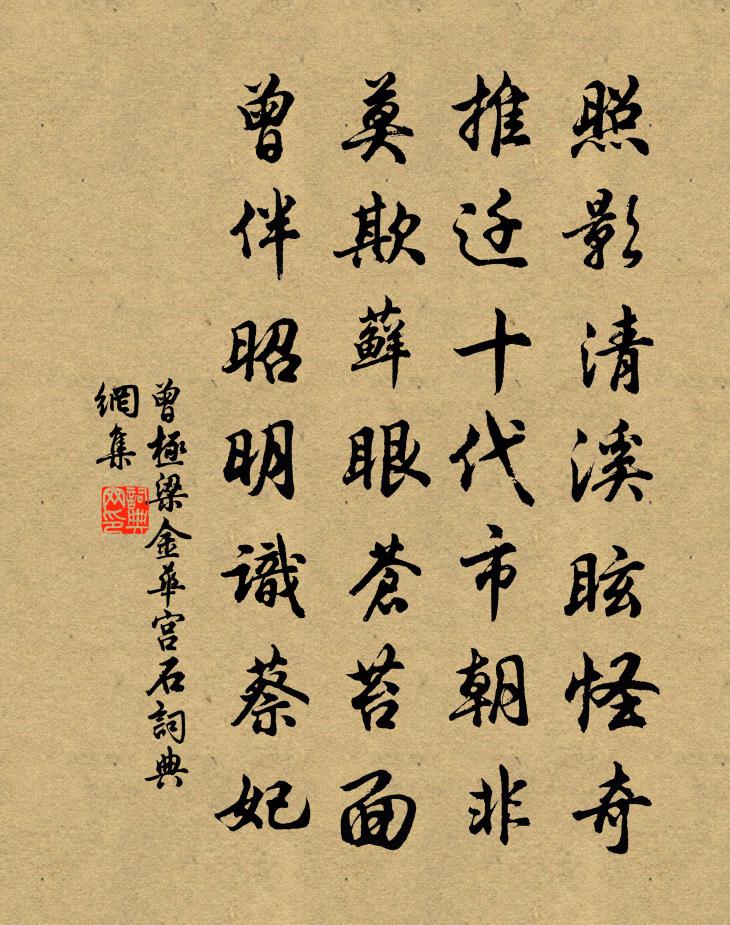 照影清溪眩怪奇
推迁十代市朝非
莫欺蘚眼蒼苔面
曾伴昭明識蔡妃
曾極梁金華宮石詞典
網集
詞典網印